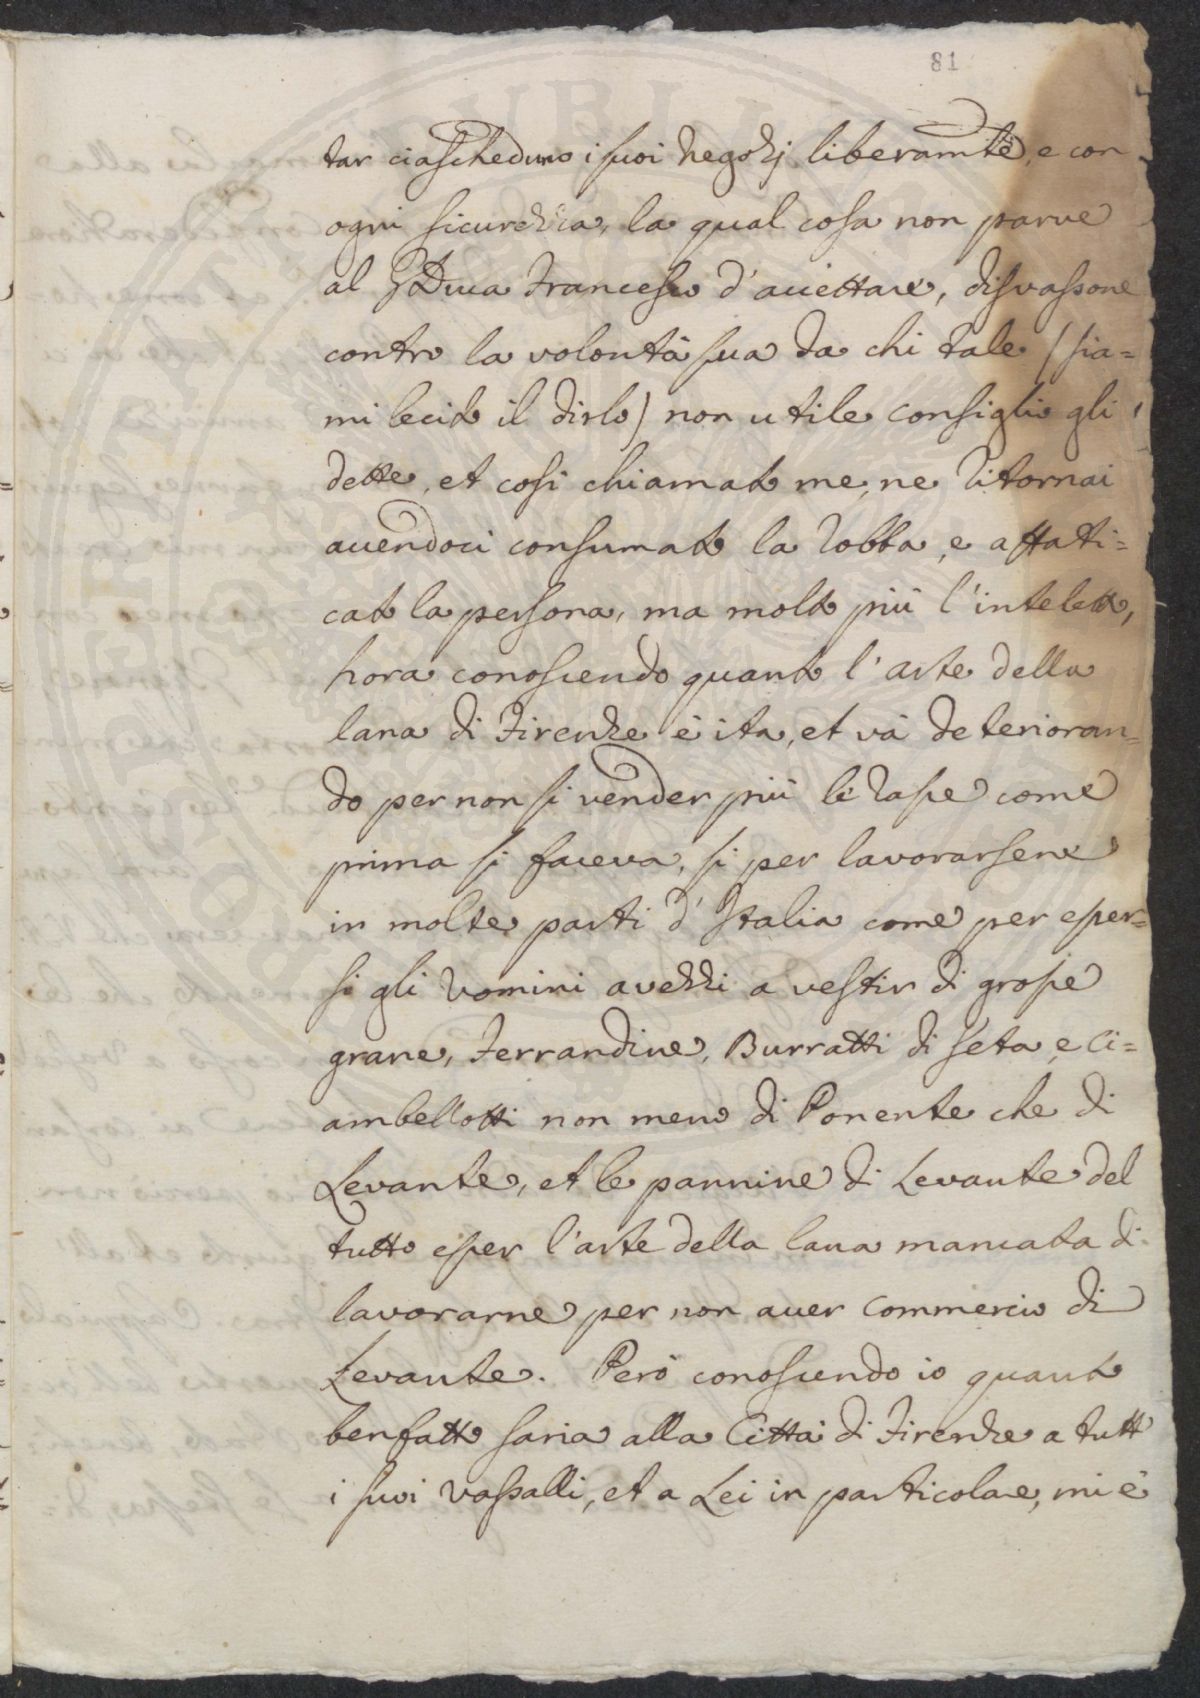 81
tar ciascheduno i suoi negozj liberamte, e con
ogni sicurezza, la qual cosa non parve
al G Duca Francesco d'accettare, disvassone
contro la volontà sua da chi tale (sia=
mi lecito il dirlo) non utile consiglio gli
dette, et cosi chiamato me, ne ritornai
avendoci consumato la robba, e affati=
cato la persona, ma molto più l'inteletto,
hora conoscendo quanto l'arte della
lana di Firenze è ita, et và deterioran=
do per non si vender più le rasce come
prima si faceva, si per lavorarsene
in molte parti d'Italia come per esser=
si gli uomini avezzi a vestir di grosse
grane, Ferrandine, Burratti di seta, e Ci=
ambellotti non meno di Ponente che di
Levante, et le pannine di Levante del
tutto esser l'arte della lana mancata di
lavorarne per non aver commercio di
Levante. Però conoscendo io quanto
benfatto saria alla Città di Firenze a tutti
i suoi vassalli, et a Lei in particolare, mi è